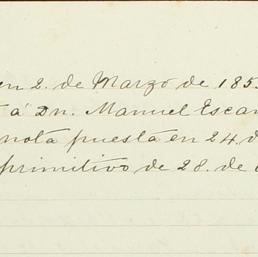 en 2. de Marzo de 185
á Dn. Manuel Escan
nota puesta en 24 d
primitivo de 28. de